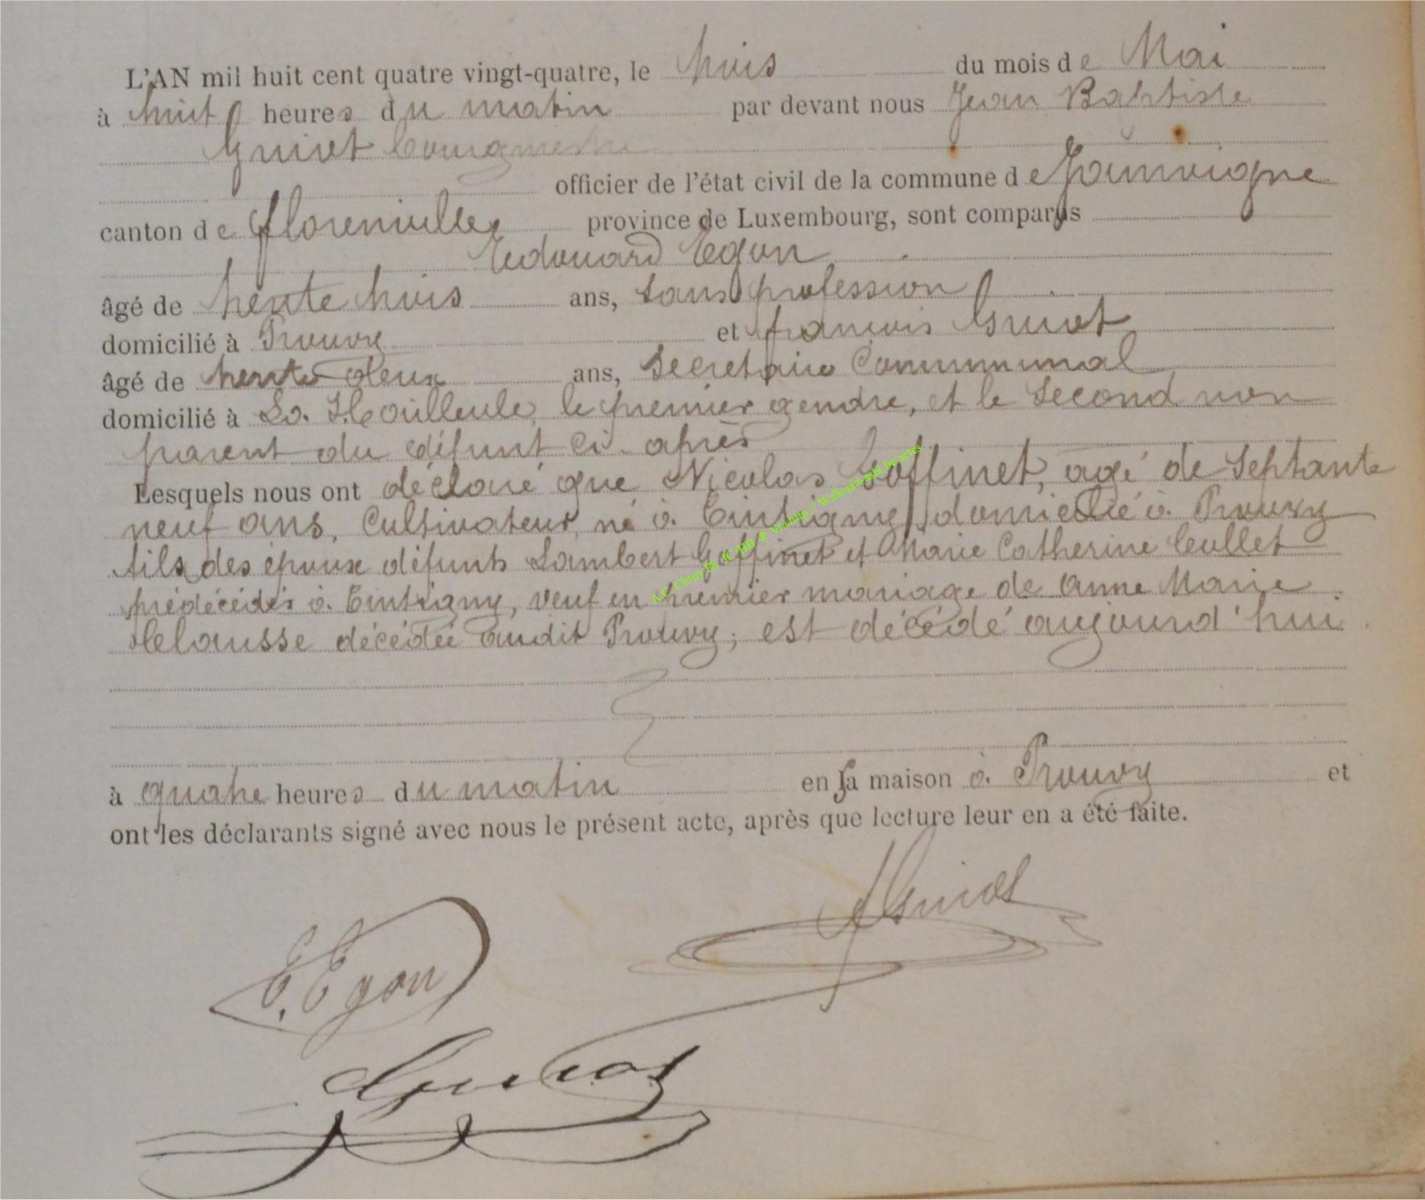 L'AN mil huit cent quatre vingt-quatre, le trois du mois de Mai
à huit heures du matin par devant nous Jean Baptiste
Guiot bourgmestre
officier de l'état civil de la commune de Jamoigne
canton de Florenville province de Luxembourg, sont comparus
Edouard Egon
âgé de trente trois ans, sans profession
domicilié à Prouvy et françois Guiot
âgé de trente deux ans, Secretaire Communal
domicilié à La Houilleule, le premier gendre, et le second non
parent du défunt ci-après
Lesquels nous ont déclaré que Nicolas Goffinet, agé de Septante
neuf ans, Cultivateur, né à Tintigny, domicilié à Prouvy
fils des époux défunts Lambert Goffinet et Marie Catherine Collet
prédécédés à Tintigny, veuf en premier mariage de Anne Marie
décédée audit Prouvy; est décédé aujourd'hui
à quatre heures du matin en sa maison à Prouvy et
ont les déclarants signé avec nous le présent acte, après que lecture leur en a été faite.
Guiot
E. Egon